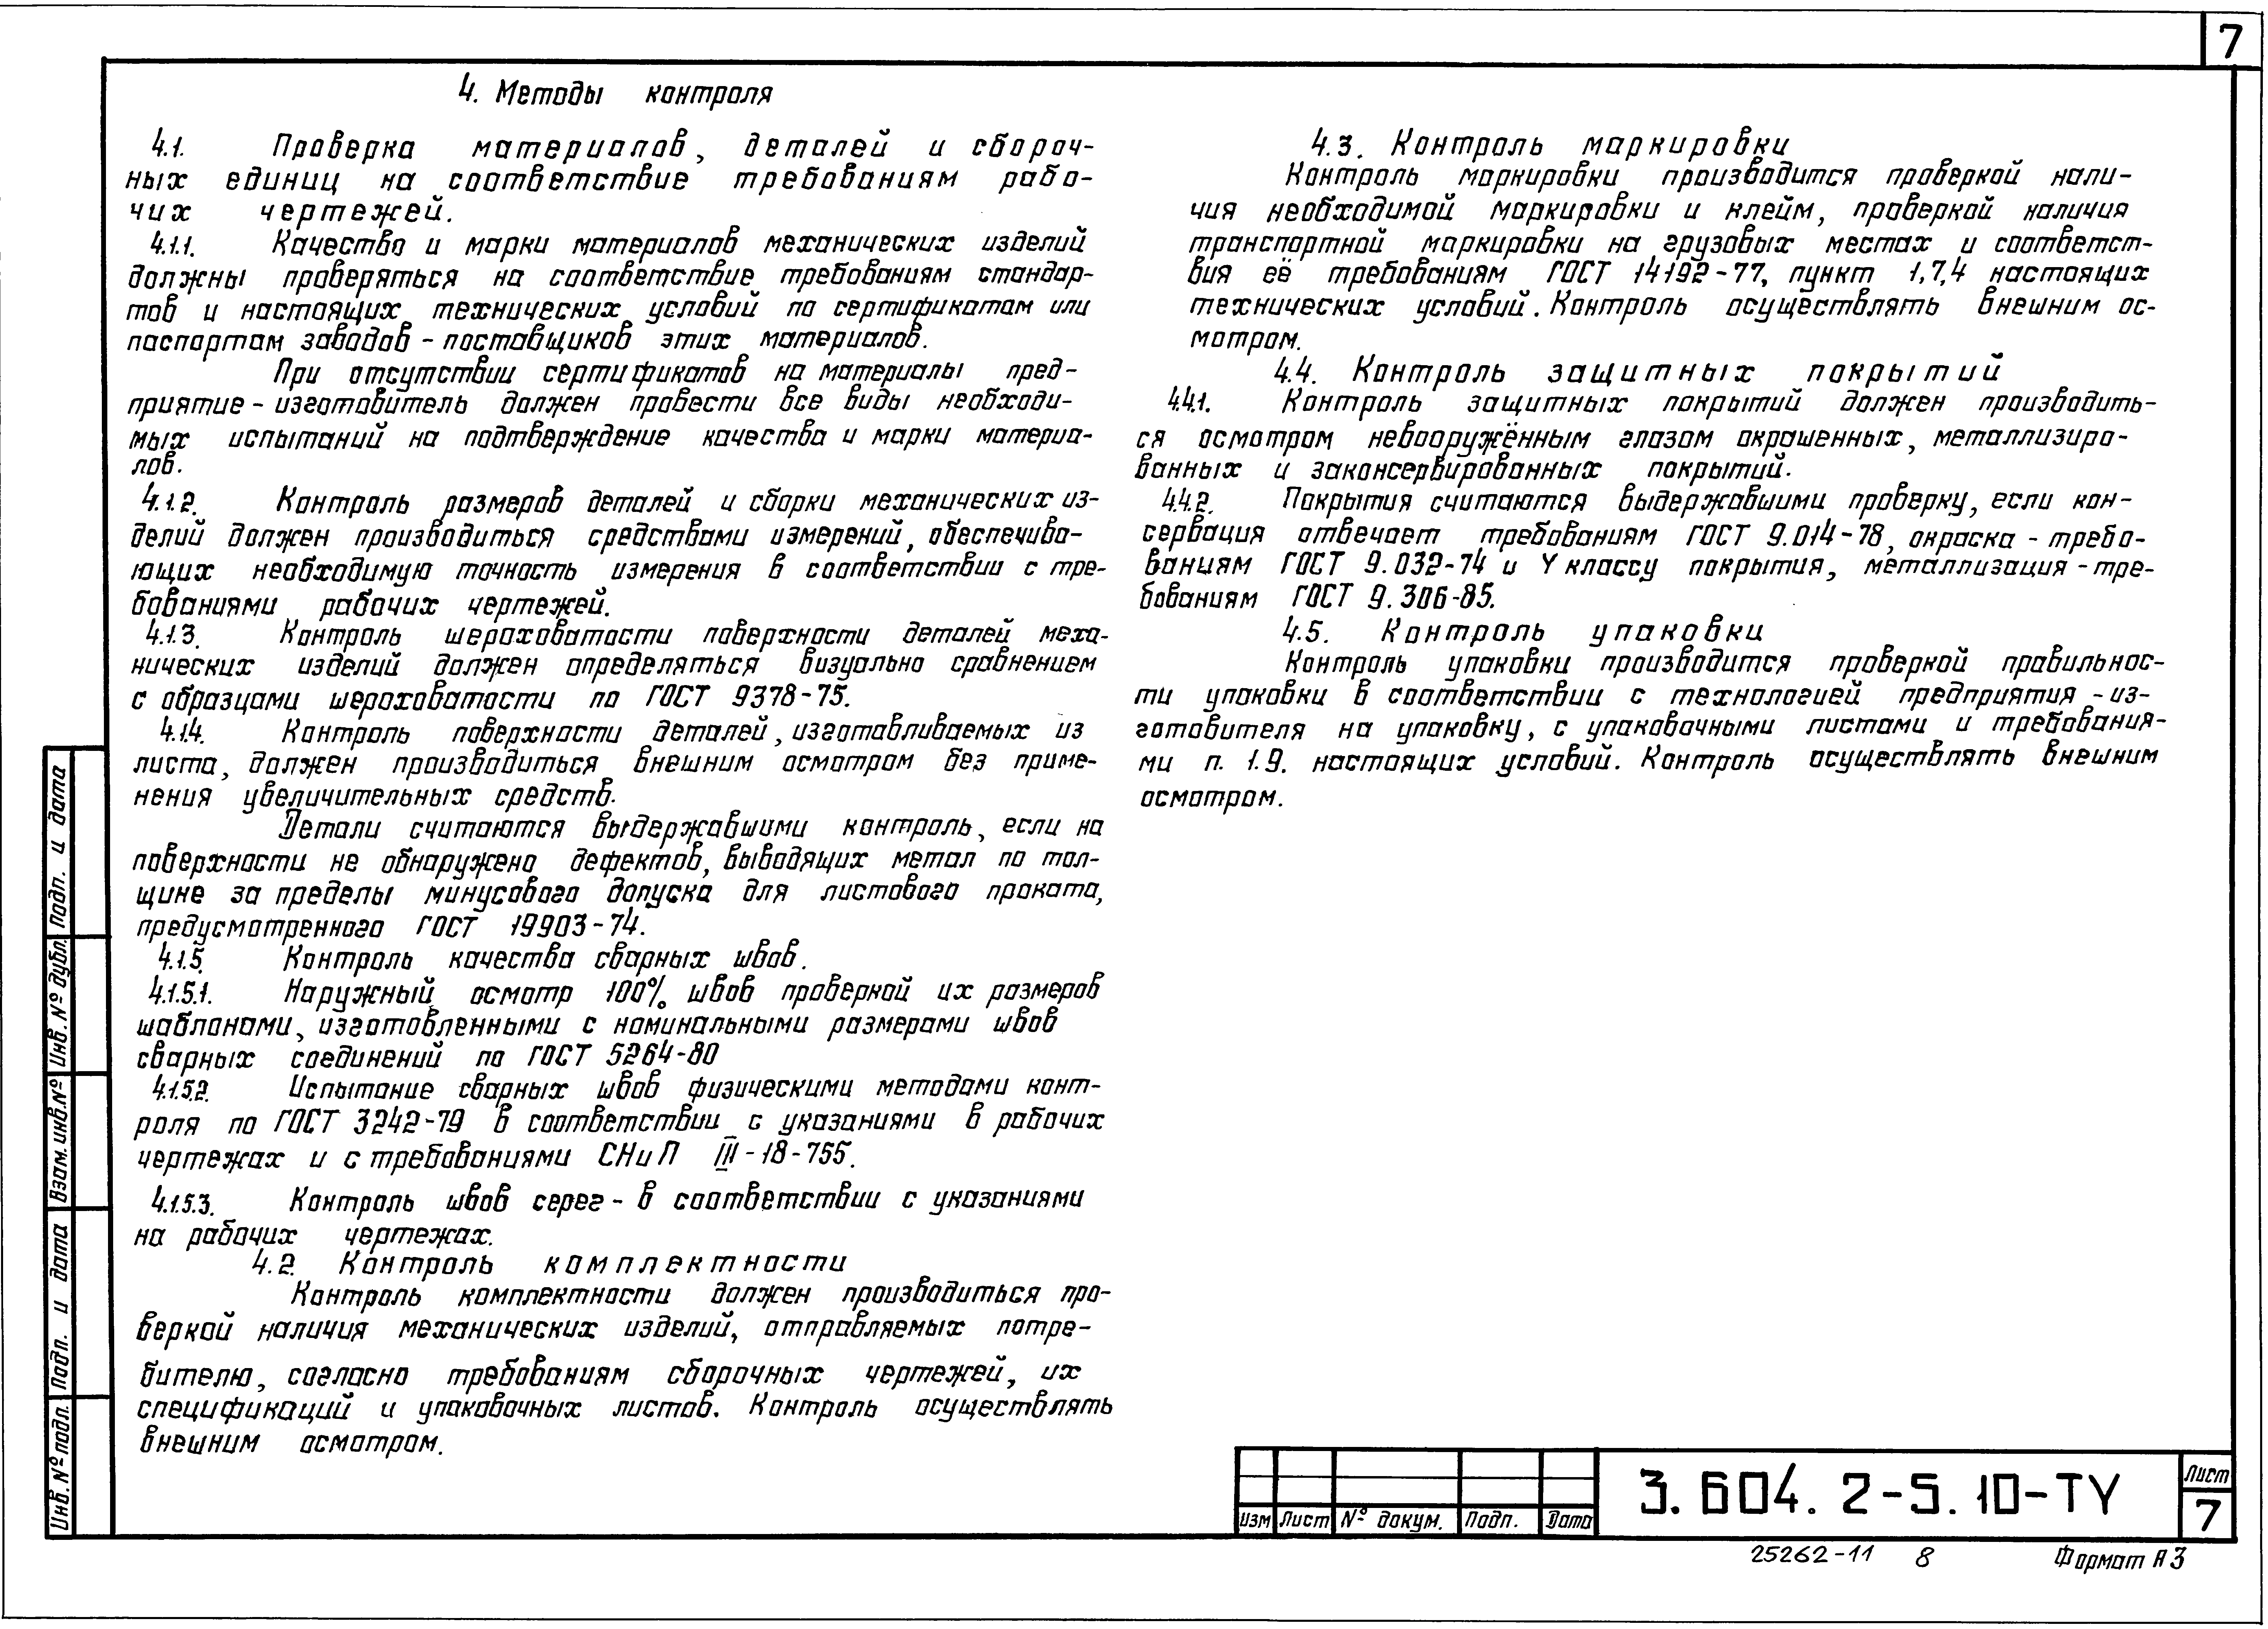 7
4. Методы контроля
4.1. Проверка материалов, деталей и сбороч-
ных единиц на соответствие требованиям рабо-
чих чертежей.
4.1.1. Качество и марки материалов механических изделий
должны проверяться на соответствие требованиям стандар-
тов и настоящих технических условий по сертификатам или
паспортам заводов-поставщиков этих материалов.
При отсутствии сертификатов на материалы пред-
приятие-изготовитель должен провести все виды необходи-
мых испытаний на подтверждение качества и марки материа-
лов.
4.1.2. Контроль размеров деталей и сборки механических из-
делий должен производиться средствами измерений, обеспечива-
ющих необходимую точность измерения в соответствии с тре-
бованиями рабочих чертежей.
4.1.3. Контроль шероховатости поверхности деталей меха-
нических изделий должен определяться визуально сравнением
с образцами шероховатости по ГОСТ 9378-75.
4.1.4. Контроль поверхности деталей, изготавливаемых из
листа, должен производиться внешним осмотром без приме-
нения увеличительных средств.
Детали считаются выдержавшими контроль, если на
поверхности не обнаружено дефектов, выводящих метал по тол-
щине за пределы минусового допуска для листового проката,
предусмотренного ГОСТ 19903-74.
4.1.5. Контроль качества сварных швов.
4.1.5.1. Наружный осмотр 100% швов проверкой их размеров
шаблонами, изготовленными с номинальными размерами швов
сварных соединений по ГОСТ 5264-80
4.1.5.2. Испытание сварных швов физическими методами конт-
роля по ГОСТ 3242-79 в соответствии с указаниями в рабочих
чертежах и с требованиями СНиП III-18-755.
4.1.5.3. Контроль швов серег - в соответствии с указаниями
на рабочих чертежах.
4.2. Контроль комплектности
Контроль комплектности должен производиться про-
веркой наличия механических изделий, отправляемых потре-
бителю, согласно требованиям сборочных чертежей, их
спецификаций и упаковочных листов. Контроль осуществлять
внешним осмотром.
4.3. Контроль маркировки
Контроль маркировки производится проверкой нали-
чия необходимой маркировки и клейм, проверкой наличия
транспортной маркировки на грузовых местах и соответст-
вия её требованиям ГОСТ 14192-77, пункт 1,7,4 настоящих
технических условий. Контроль осуществлять внешним ос-
мотром.
4.4. Контроль защитных покрытий
4.4.1. Контроль защитных покрытий должен производить-
ся осмотром невооружённым глазом окрашенных, металлизиро-
ванных и законсервированных покрытий.
4.4.2. Покрытия считаются выдержавшими проверку, если кон-
сервация отвечает требованиям ГОСТ 9.014-78, окраска - требо-
ваниям ГОСТ 9.032-74 и Y классу покрытия, металлизация - тре-
бованиям ГОСТ 9.306-85.
4.5. Контроль упаковки
Контроль упаковки производится проверкой правильнос-
ти упаковки в соответствии с технологией предприятия - из-
готовителя на упаковку, с упаковочными листами и требования-
ми п. 1.9. настоящих условий. Контроль осуществлять внешним
осмотром.
Инв. № подл. Подп. и дата Взам. инв. № Инв. № дубл. Подп. и дата
Изм Лист № докум. Подп. Дата
3.604.2-5.10-ТУ
Лист
7
25262-11 8 Формат А3